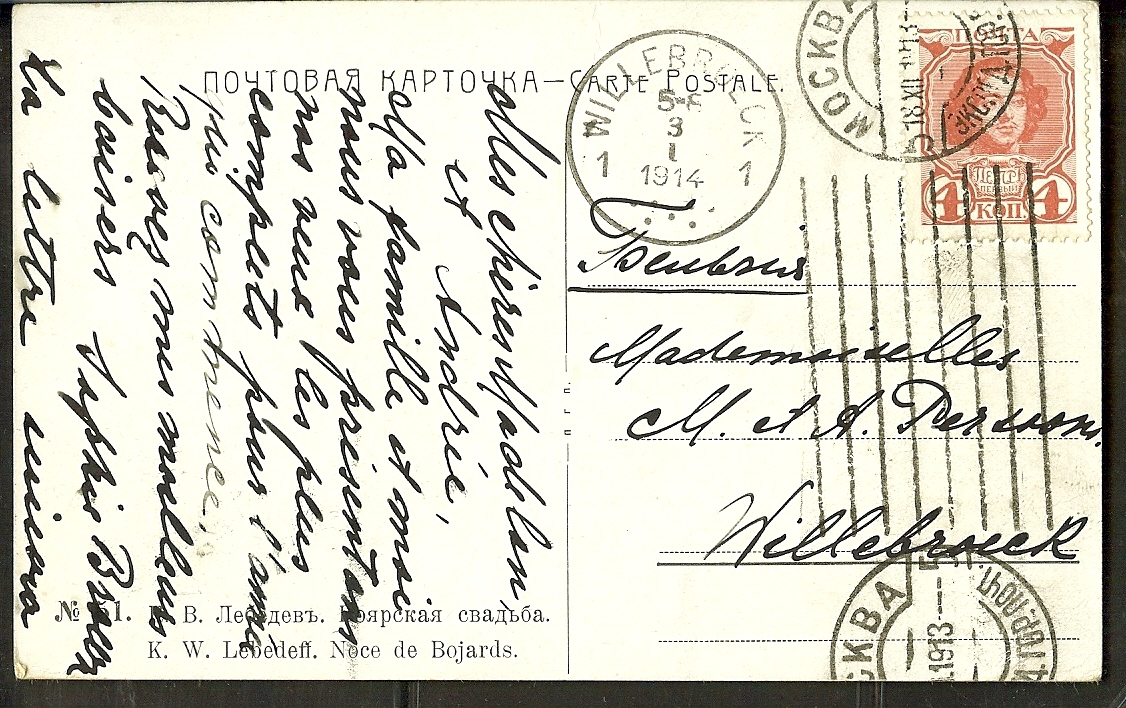 ПОЧТОВАЯ КАРТОЧКА—CARTE POSTALE.
WILLEBROECK
5-6
3
1
1914
1 1
МОСКВА
18 XII 1913
ПОЧТА
ПЕТРЪ
ПЕРВЫЙ
4 КОП 4
Mes chères Madelon,
et Andrée,
Ma famille et moi
nous vous présentons
nos vœux les plus
complets pour l'année
qui commence,
Recevez mes meilleurs
baisers Sophie
La lettre suivra
Бельгия
Mademoiselles
M. et A.
Willebroeck
№ 51. К. В. Лебедевъ. Боярская свадьба.
K. W. Lebedeff. Noce de Bojards.
МОСКВА
1913